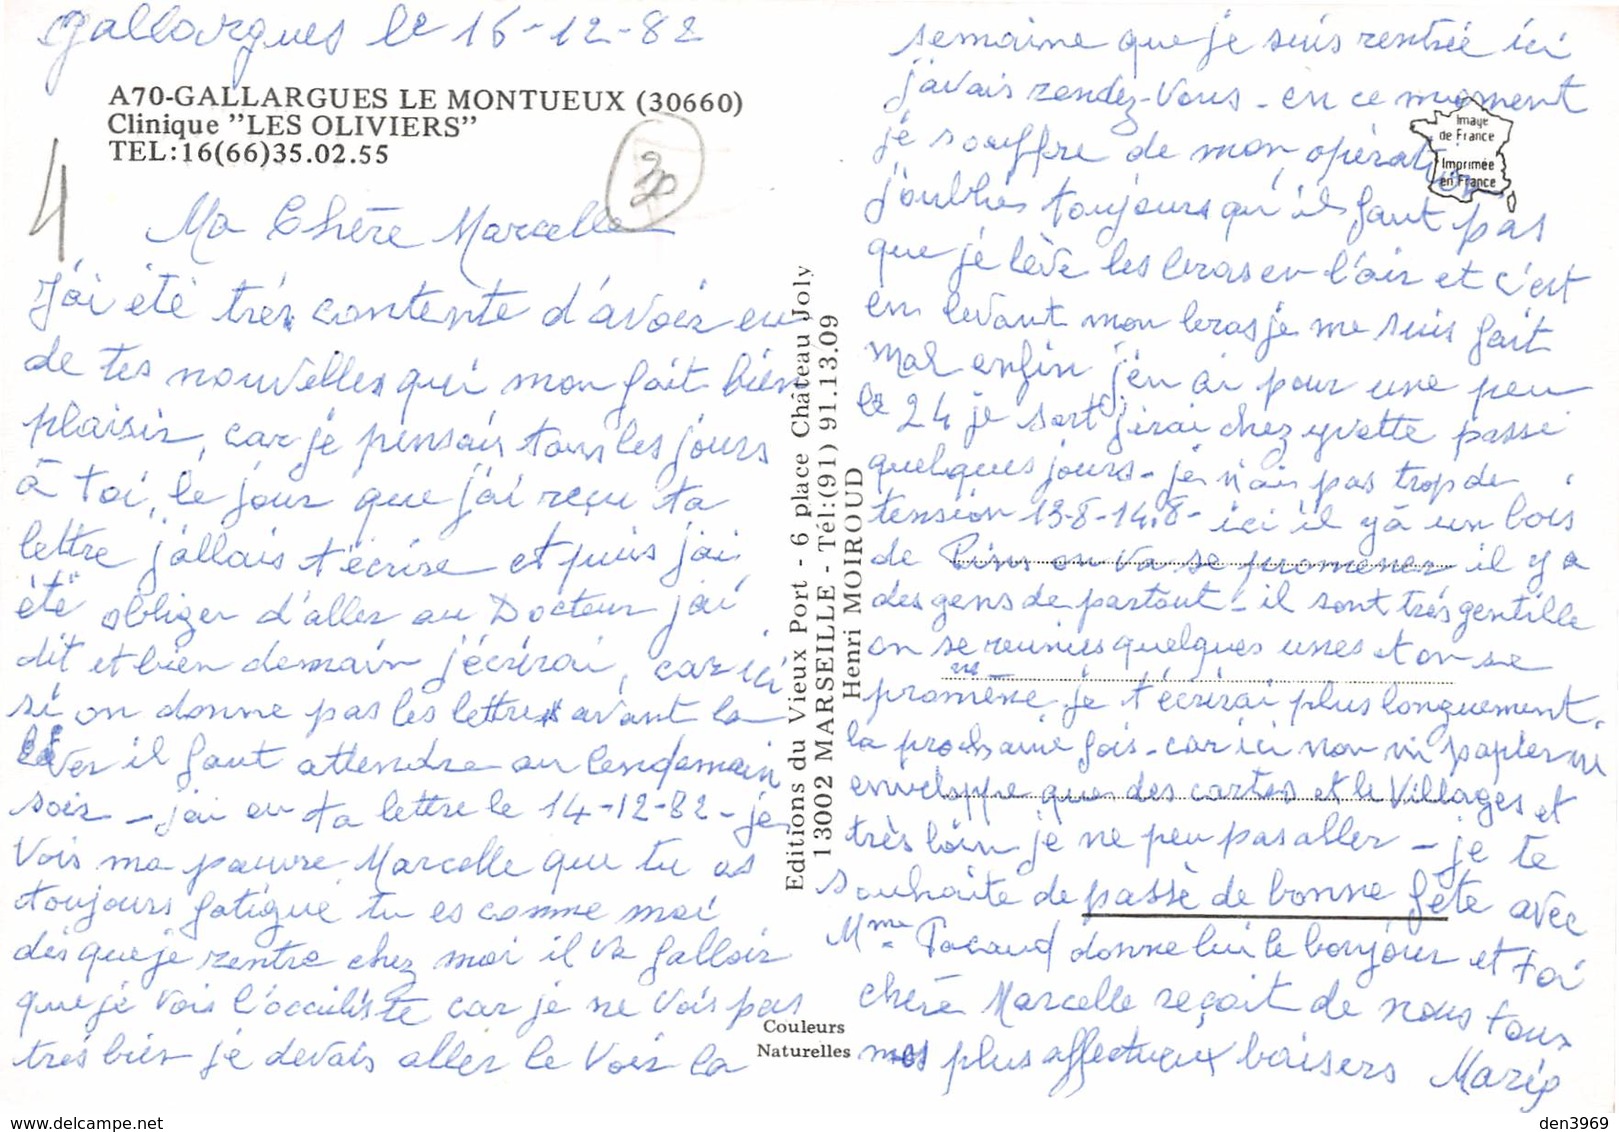 Gallargues le 16-12-82
A70-GALLARGUES LE MONTUEUX (30660)
Clinique "LES OLIVIERS"
TEL:16(66)35.02.55
4
30
Ma Chère Marcelle
J'ai été très contente d'avoir eu
de tes nouvelles qui mon fait bien
plaisir, car je pensais tous les jours
à toi, le jour que j'ai reçu ta
lettre j'allais t'écrire et puis j'ai
été obliger d'aller au Docteur j'ai
dit et bien demain j'écrirai, car ici
si on donne pas les lettres avant la
il faut attendre au lendemain
soir - j'ai eu ta lettre le 14-12-82 - je
Vois ma pauvre Marcelle que tu as
toujours fatigué tu es comme moi
dès que je rentre chez moi il va falloir
que je vois l'occuliste car je ne vois pas
très bien je devais aller le voir la
Editions du Vieux Port - 6 place Château Joly
13002 MARSEILLE - Tél:(91) 91.13.09
Henri MOIROUD
Couleurs
Naturelles
Image
de France
Imprimée
en France
semaine que je suis rentrée ici
j'avais rendez-vous - en ce moment
je souffre de mon opération
j'oublies toujours qu'il faut pas
que je lève les bras en l'air et c'est
en levant mon bras je me suis fait
mal enfin j'en ai pour une peu
le 24 je sort j'irai chez yvette passé
quelques jours - je n'ais pas trop de
tension 13-8-14.8 - ici il y à un bois
de Pins on va se promener il y a
des gens de partout - il sont très gentille
on se reunies quelques unes et on se
promène je t'écrirai plus longuement
la prochaine fois - car ici non ni papier ni
enveloppe que des cartes et le Villages et
très loin je ne peu pas aller - je te
souhaite de passè de bonne fête avec
Mme Pacaud donne lui le bonjour et toi
chère Marcelle reçoit de nous tous
nos plus affectueux baisers
den3969